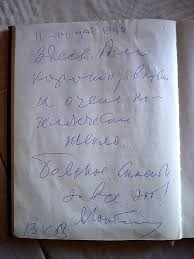 11-14 мая 1988
Здесь было
хорошо, вкусно
и очень по-
человечески
тепло.
Большое спасибо
за все это!
13 V 88